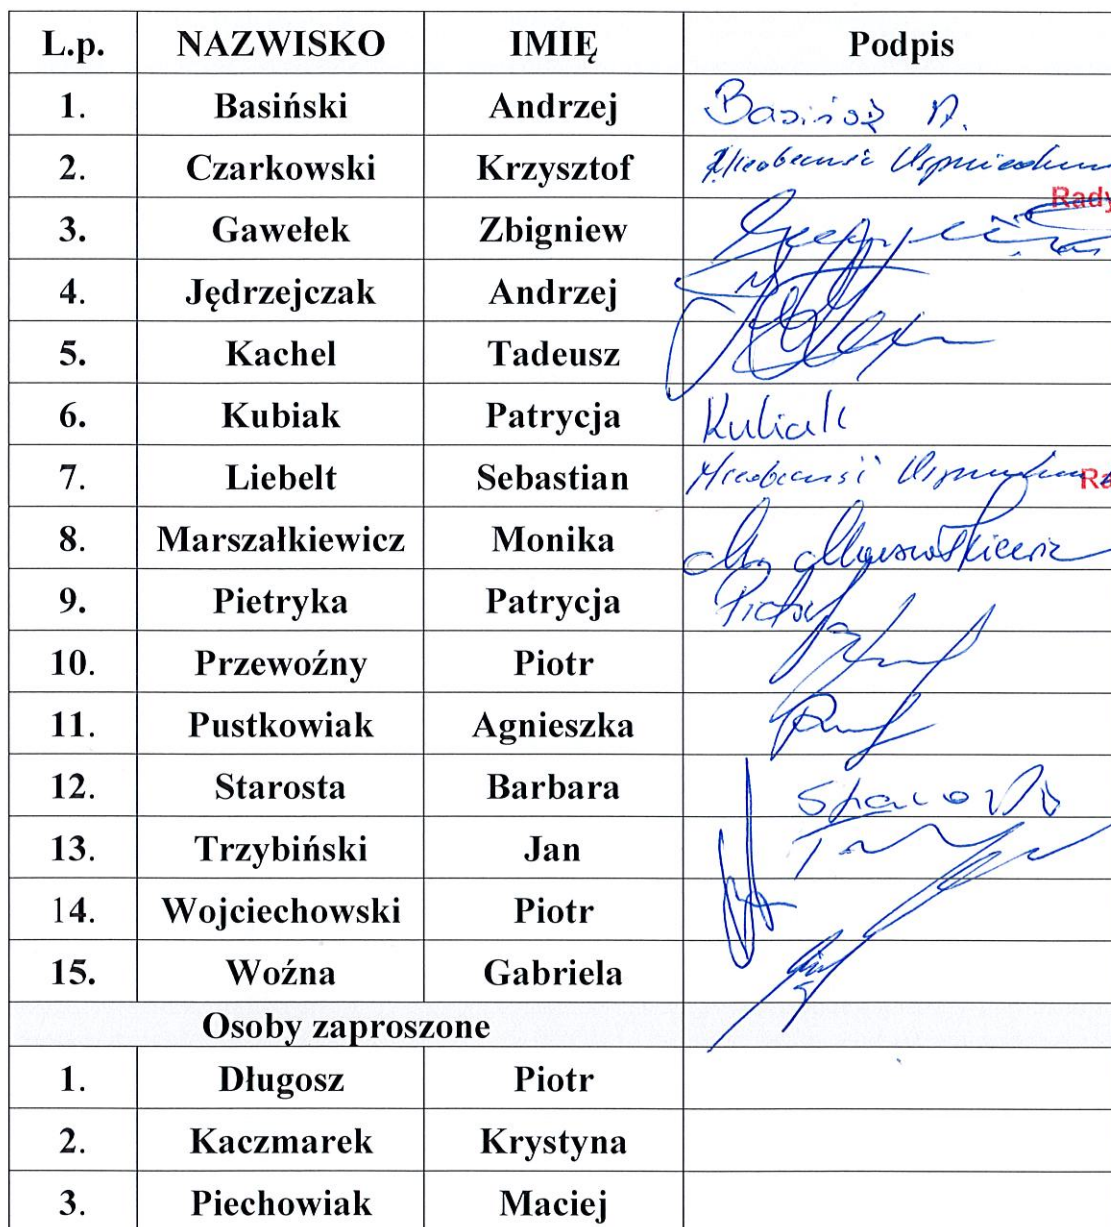 L.p. NAZWISKO IMIĘ Podpis
1. Basiński Andrzej Basiński A.
2. Czarkowski Krzysztof Nieobecność Usprawiedliwiona
Rady
3. Gawełek Zbigniew
4. Jędrzejczak Andrzej
5. Kachel Tadeusz
6. Kubiak Patrycja Kubiak
7. Liebelt Sebastian Nieobecność Ra
8. Marszałkiewicz Monika M. Marszałkiewicz
9. Pietryka Patrycja
10. Przewoźny Piotr
11. Pustkowiak Agnieszka
12. Starosta Barbara Starosta
13. Trzybiński Jan
14. Wojciechowski Piotr
15. Woźna Gabriela
Osoby zaproszone
1. Długosz Piotr
2. Kaczmarek Krystyna
3. Piechowiak Maciej